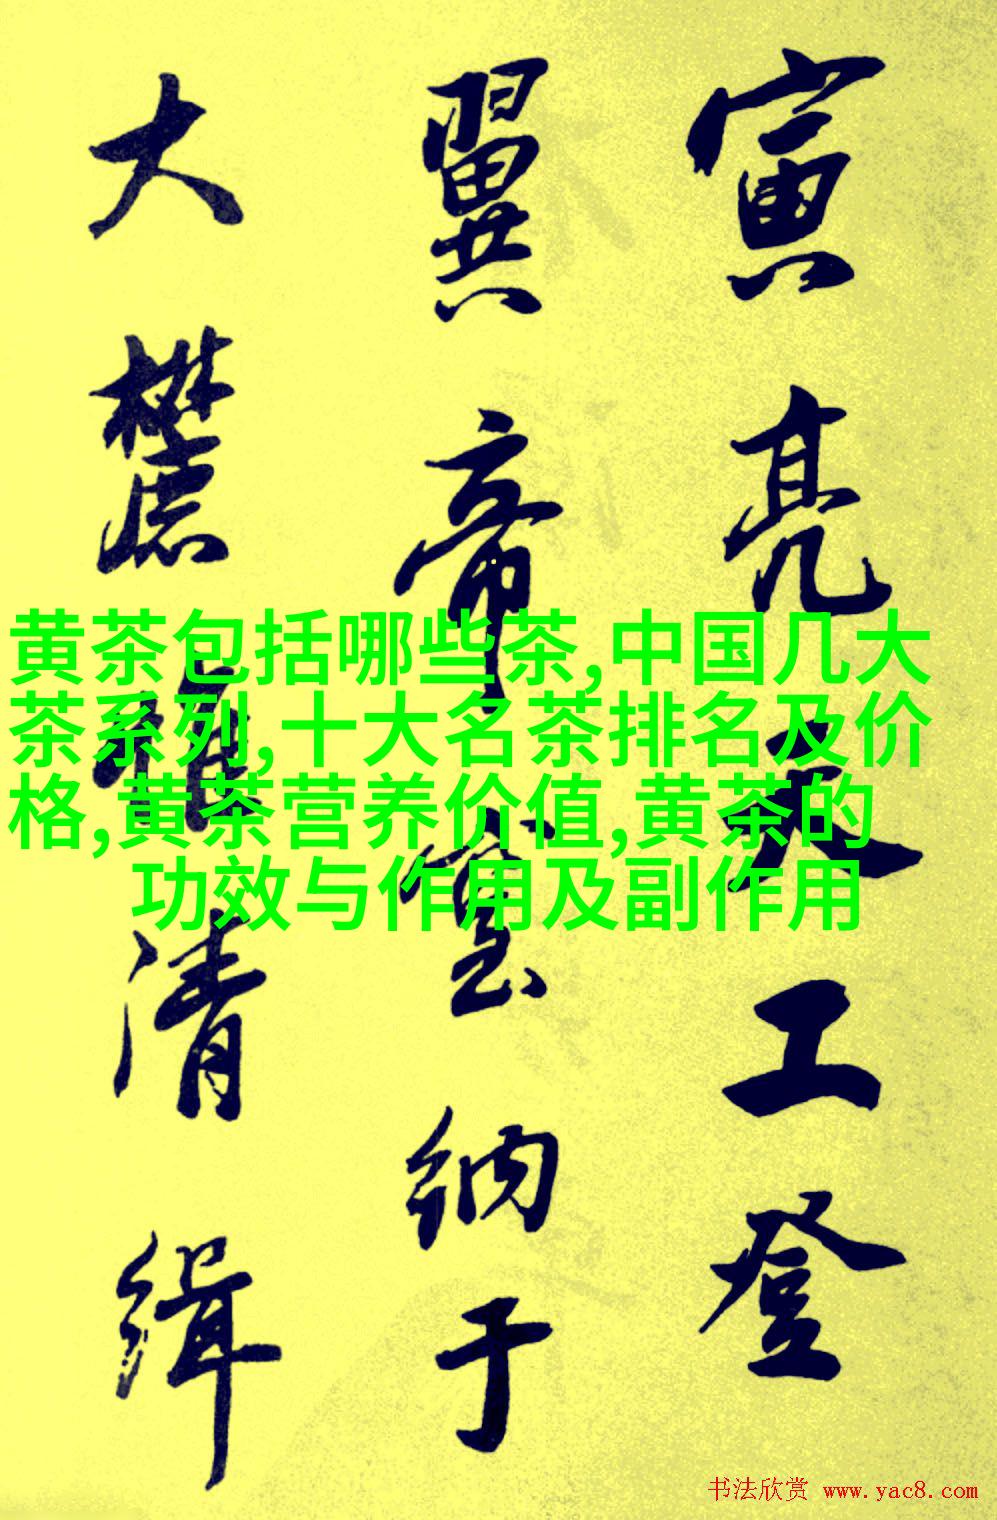 寅亮天工登
翼帝室纳于
大麓清缉
黄茶包括哪些茶,中国几大
茶系列,十大名茶排名及价
格,黄茶营养价值,黄茶的
功效与作用及副作用
书法欣赏 www.yac8.com